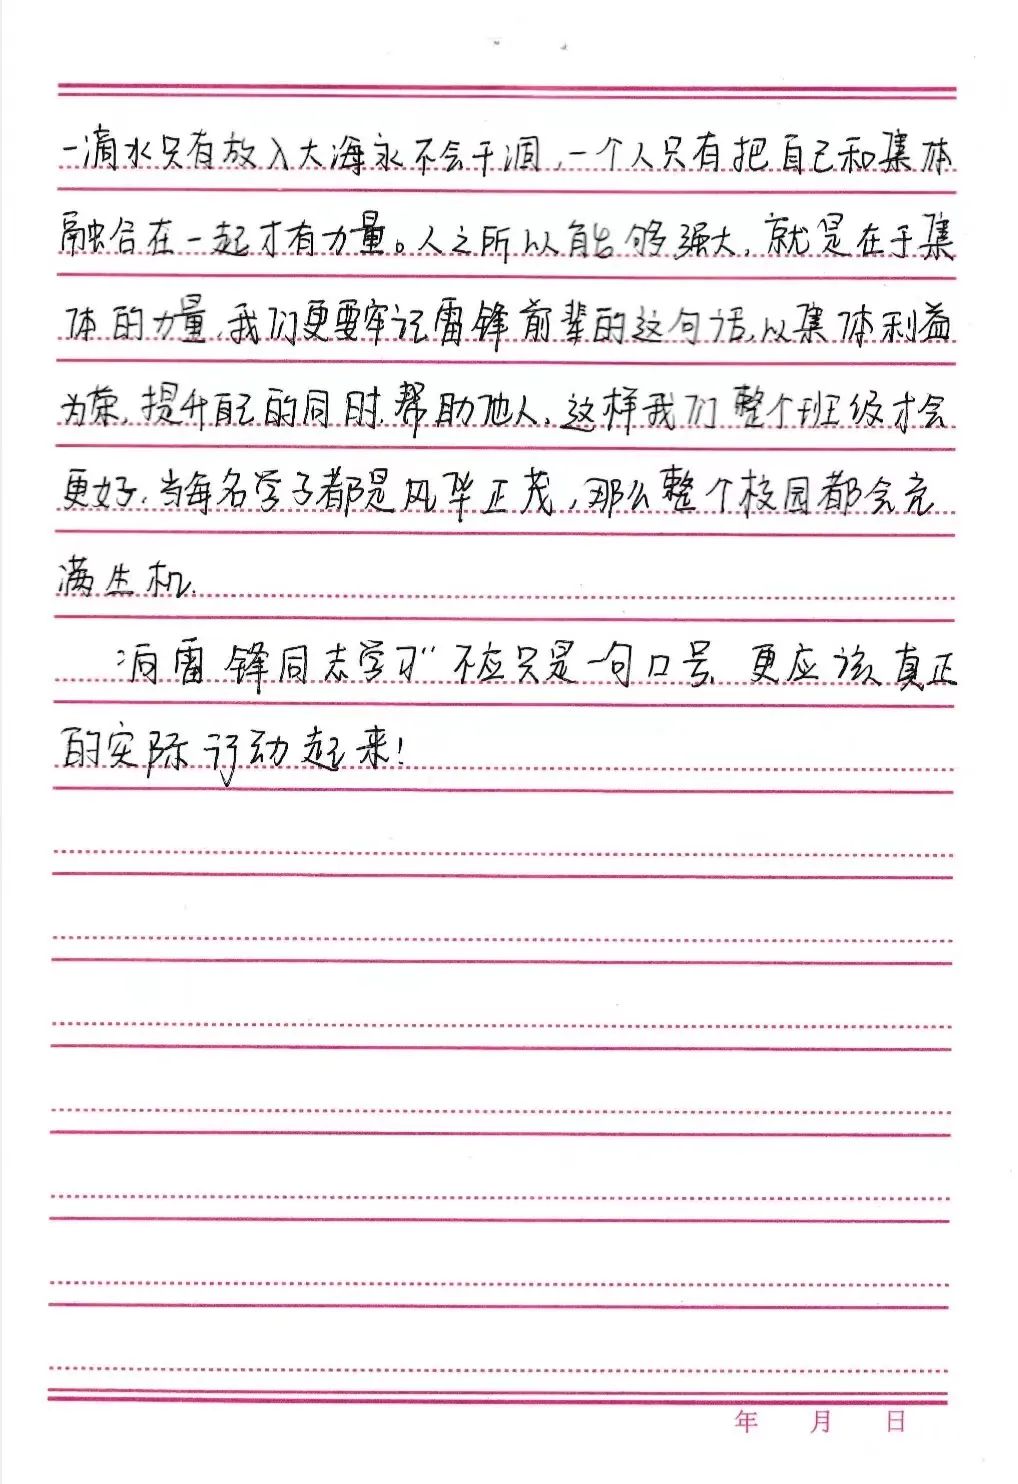 一滴水只有放入大海永不会干涸，一个人只有把自己和集体
融合在一起才有力量。人之所以能够强大，就是在于集
体的力量，我们更要牢记雷锋前辈的这句话，以集体利益
为荣，提升自己的同时，帮助他人，这样我们整个班级才会
更好，当每名学子都是风华正茂，那么整个校园都会充
满生机.
“向雷锋同志学习”不应只是一句口号，更应该真正
的实际行动起来！
年 月 日